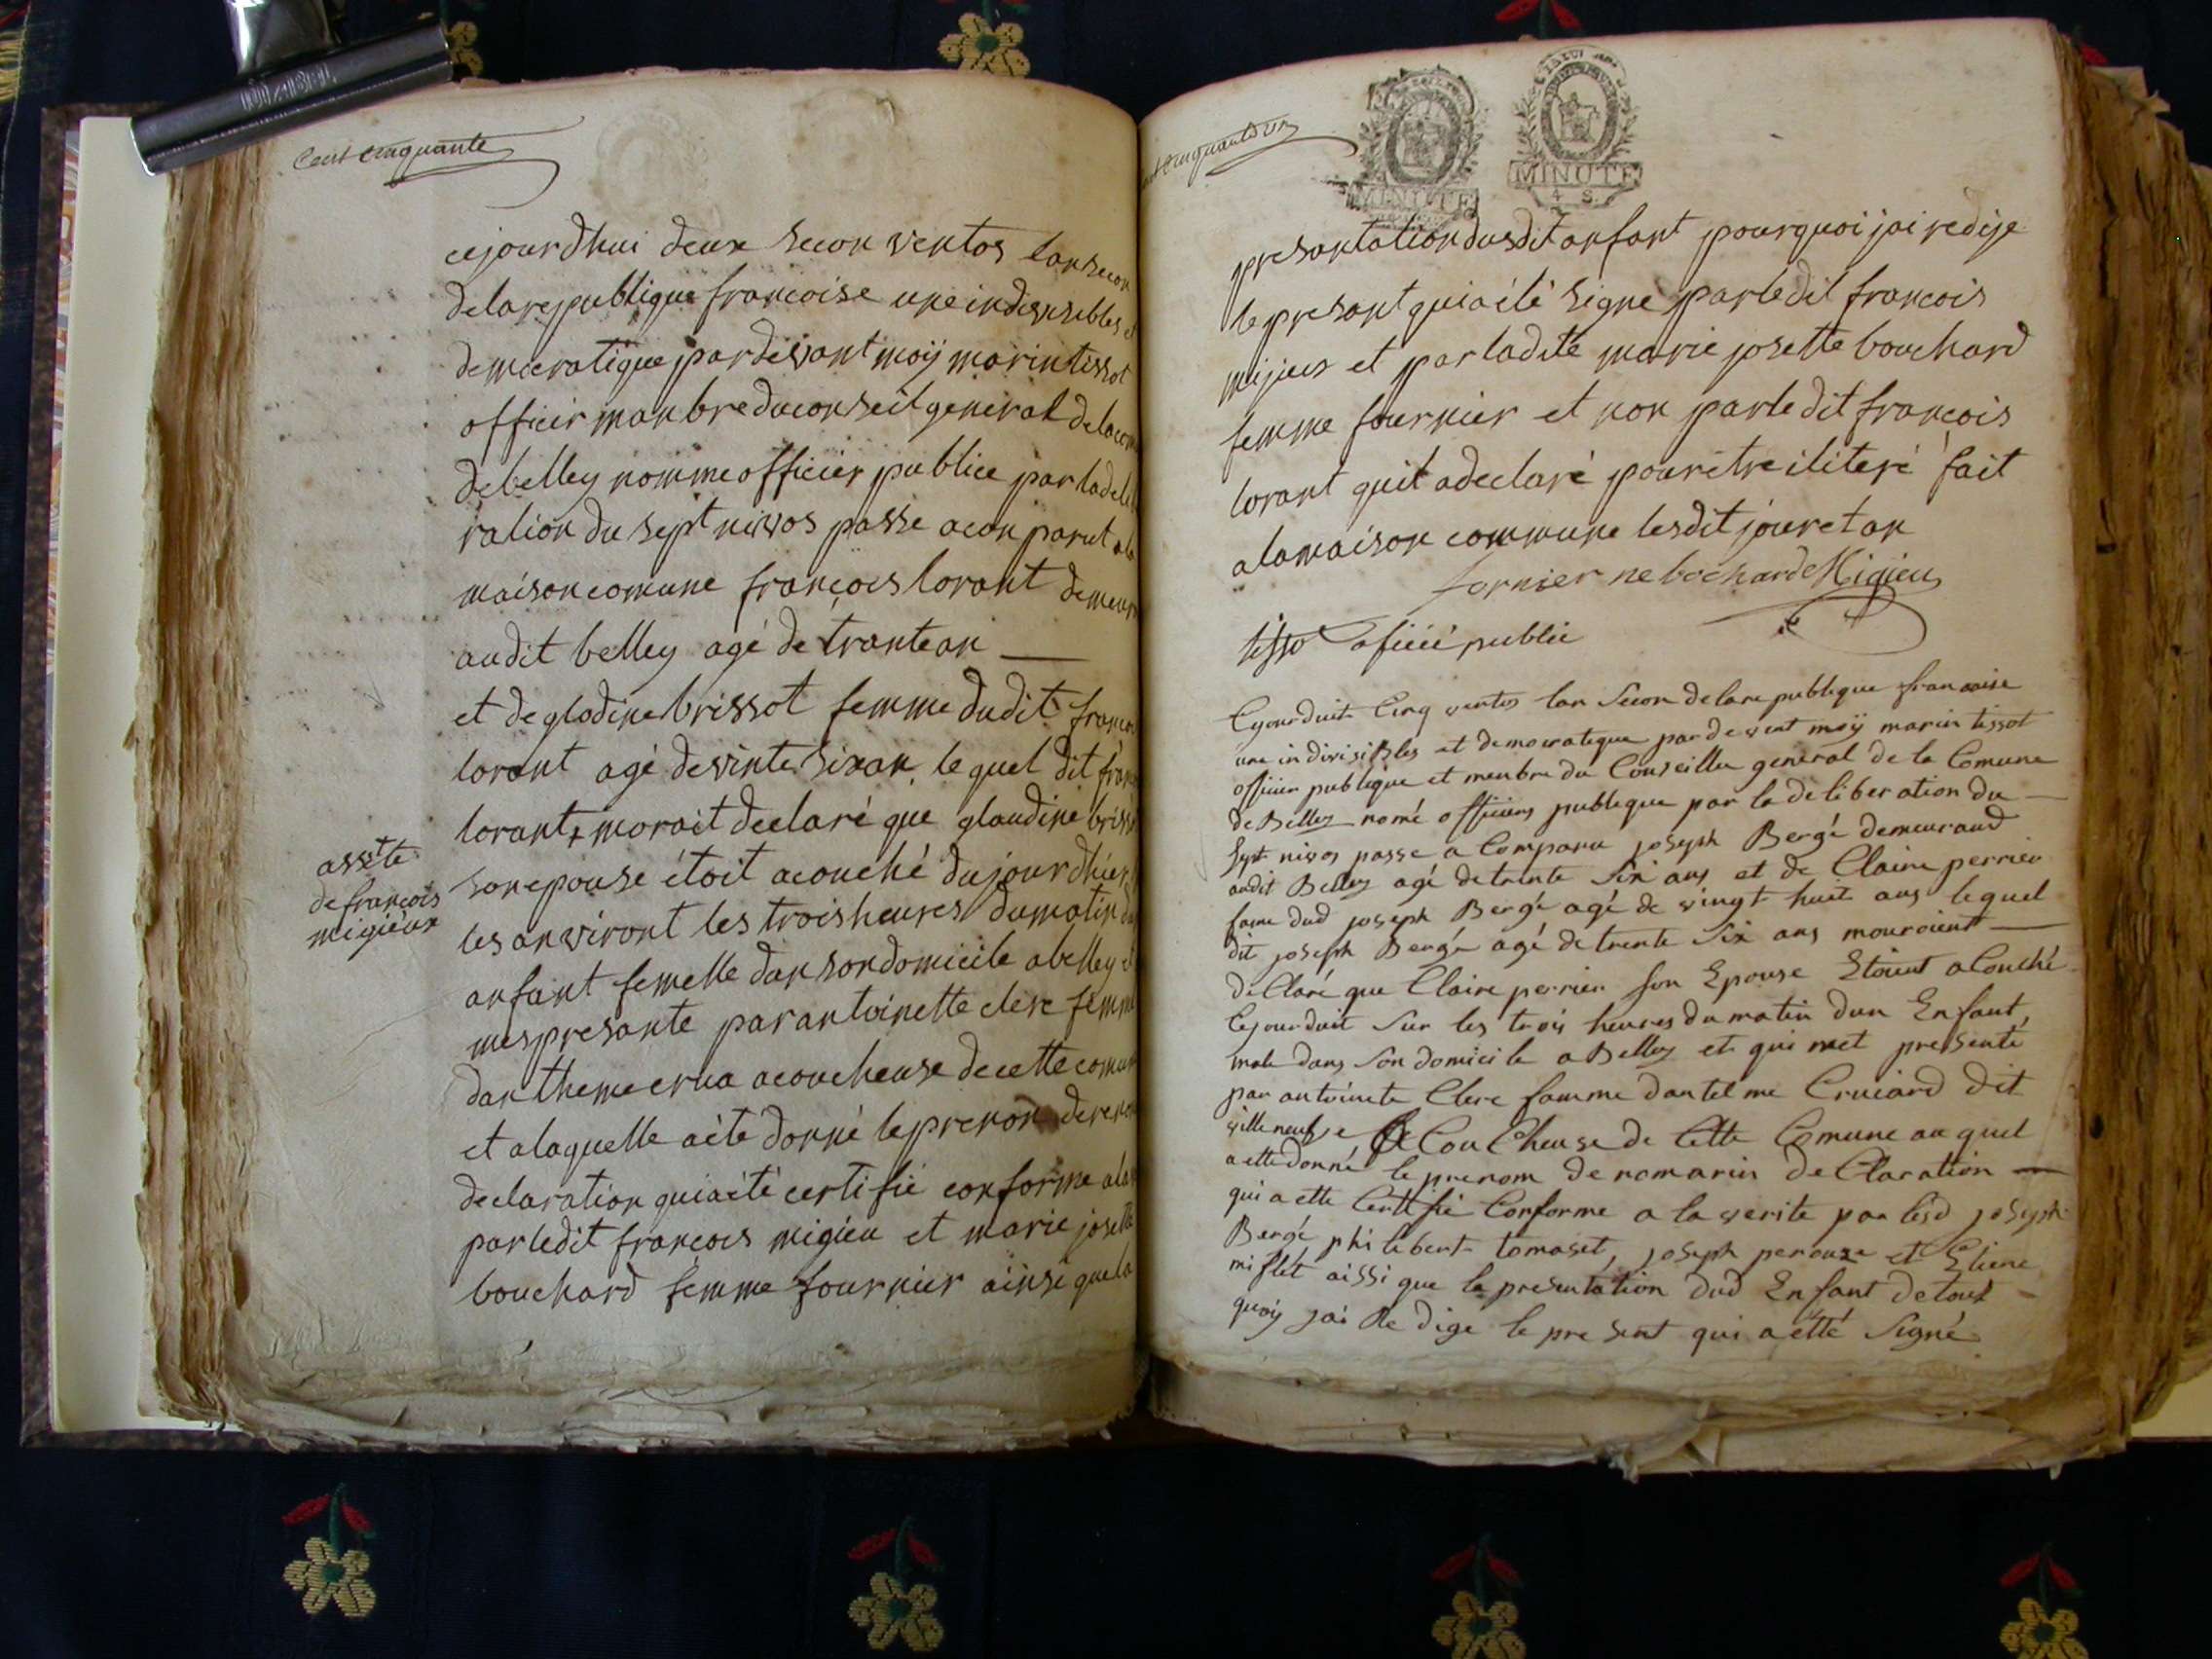 Cent cinquante
cejourdhui deux secon ventos lan secon
delarepublique francoise une indivisibles et
democratique pardevant moÿ marin tissot
officier manbre du conseil general de la com
de belley nomme officier publice par la delib
ration du sept nivos passe a con parut a la
maison comune françois lorant demeur
audit belley agé de trante an
et de glodine brissot femme dudit franco
lorant agé devinte sixan le quel dit fran
lorant morait declaré que glaudine briss
son epouse étoit acouché dujourdhier
les anviront les trois heures dumatin
assété
de francois
migieux
anfant femelle dan son domicile a belley
mes presante par antoinette clerc femme
dantheme crua acoucheuse de cette comun
et a laquelle aété donné le prenon de
declaration qui aété certifié conforme ala
par ledit francois migieu et marie josette
bouchard femme fournier ainsi que la
cinquante un
MINUTE
MINUTE
4 S
presantation dusdit anfant pourquoi jai redige
le presant qui aété signe par ledit francois
mijieus et par ladite marie josette bouchard
femme fournier et non parledit françois
lorant quil adeclaré pour étre ilitéré fait
alamaison commune lesdit jour et an
fornier ne bochard Migieu
tisso ofiié public
Cejourduit Cinq ventos lan Secon de lare publique francoise
une indivisibles et democratique par de vent moÿ marin tissot
officier publique et menbre du Conseille general de la Comune
de Belley nomé officiers publique par la deliberation du
Sept nivos passe a Comparu joseph Bergé demeurand
audit Belley agé de trente Six ans et de Claire perrier
fame dud joseph Bergé agé de vingt huit ans lequel
dit joseph Bergé agé de trente Six ans mouroient
de Claré que Claire perrier son Epouse Etoient a Couché
Cejourduit Sur les trois heures du matin dun Enfant
male dans Son domicile a Belley et qui met presenté
par antoinete Clerc famme dantelme Cruiard dit
ville neufve a Cou Cheuse de Cette Comune au quel
a etté donné le prenom de romarin de Claration
qui a etté Certifié Conforme a la verite par lesd joseph
Bergé philebert tomaset, joseph perouze et Etiene
miflet aissi que la presentation dud Enfant de tout
quoÿ jai Redige le present qui a étté Signé